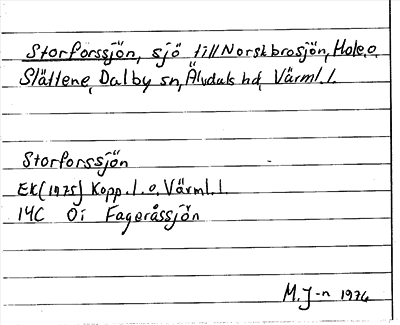 Storforssjön, sjö till Norskbrosjön, Hole o.
Slättene, Dalby sn, Älvdals hd, Värml. l.
Storforssjön
EK(1975) Kopp. l. o. Värml. l.
14C 0i Fageråssjön
M. J-n 1974